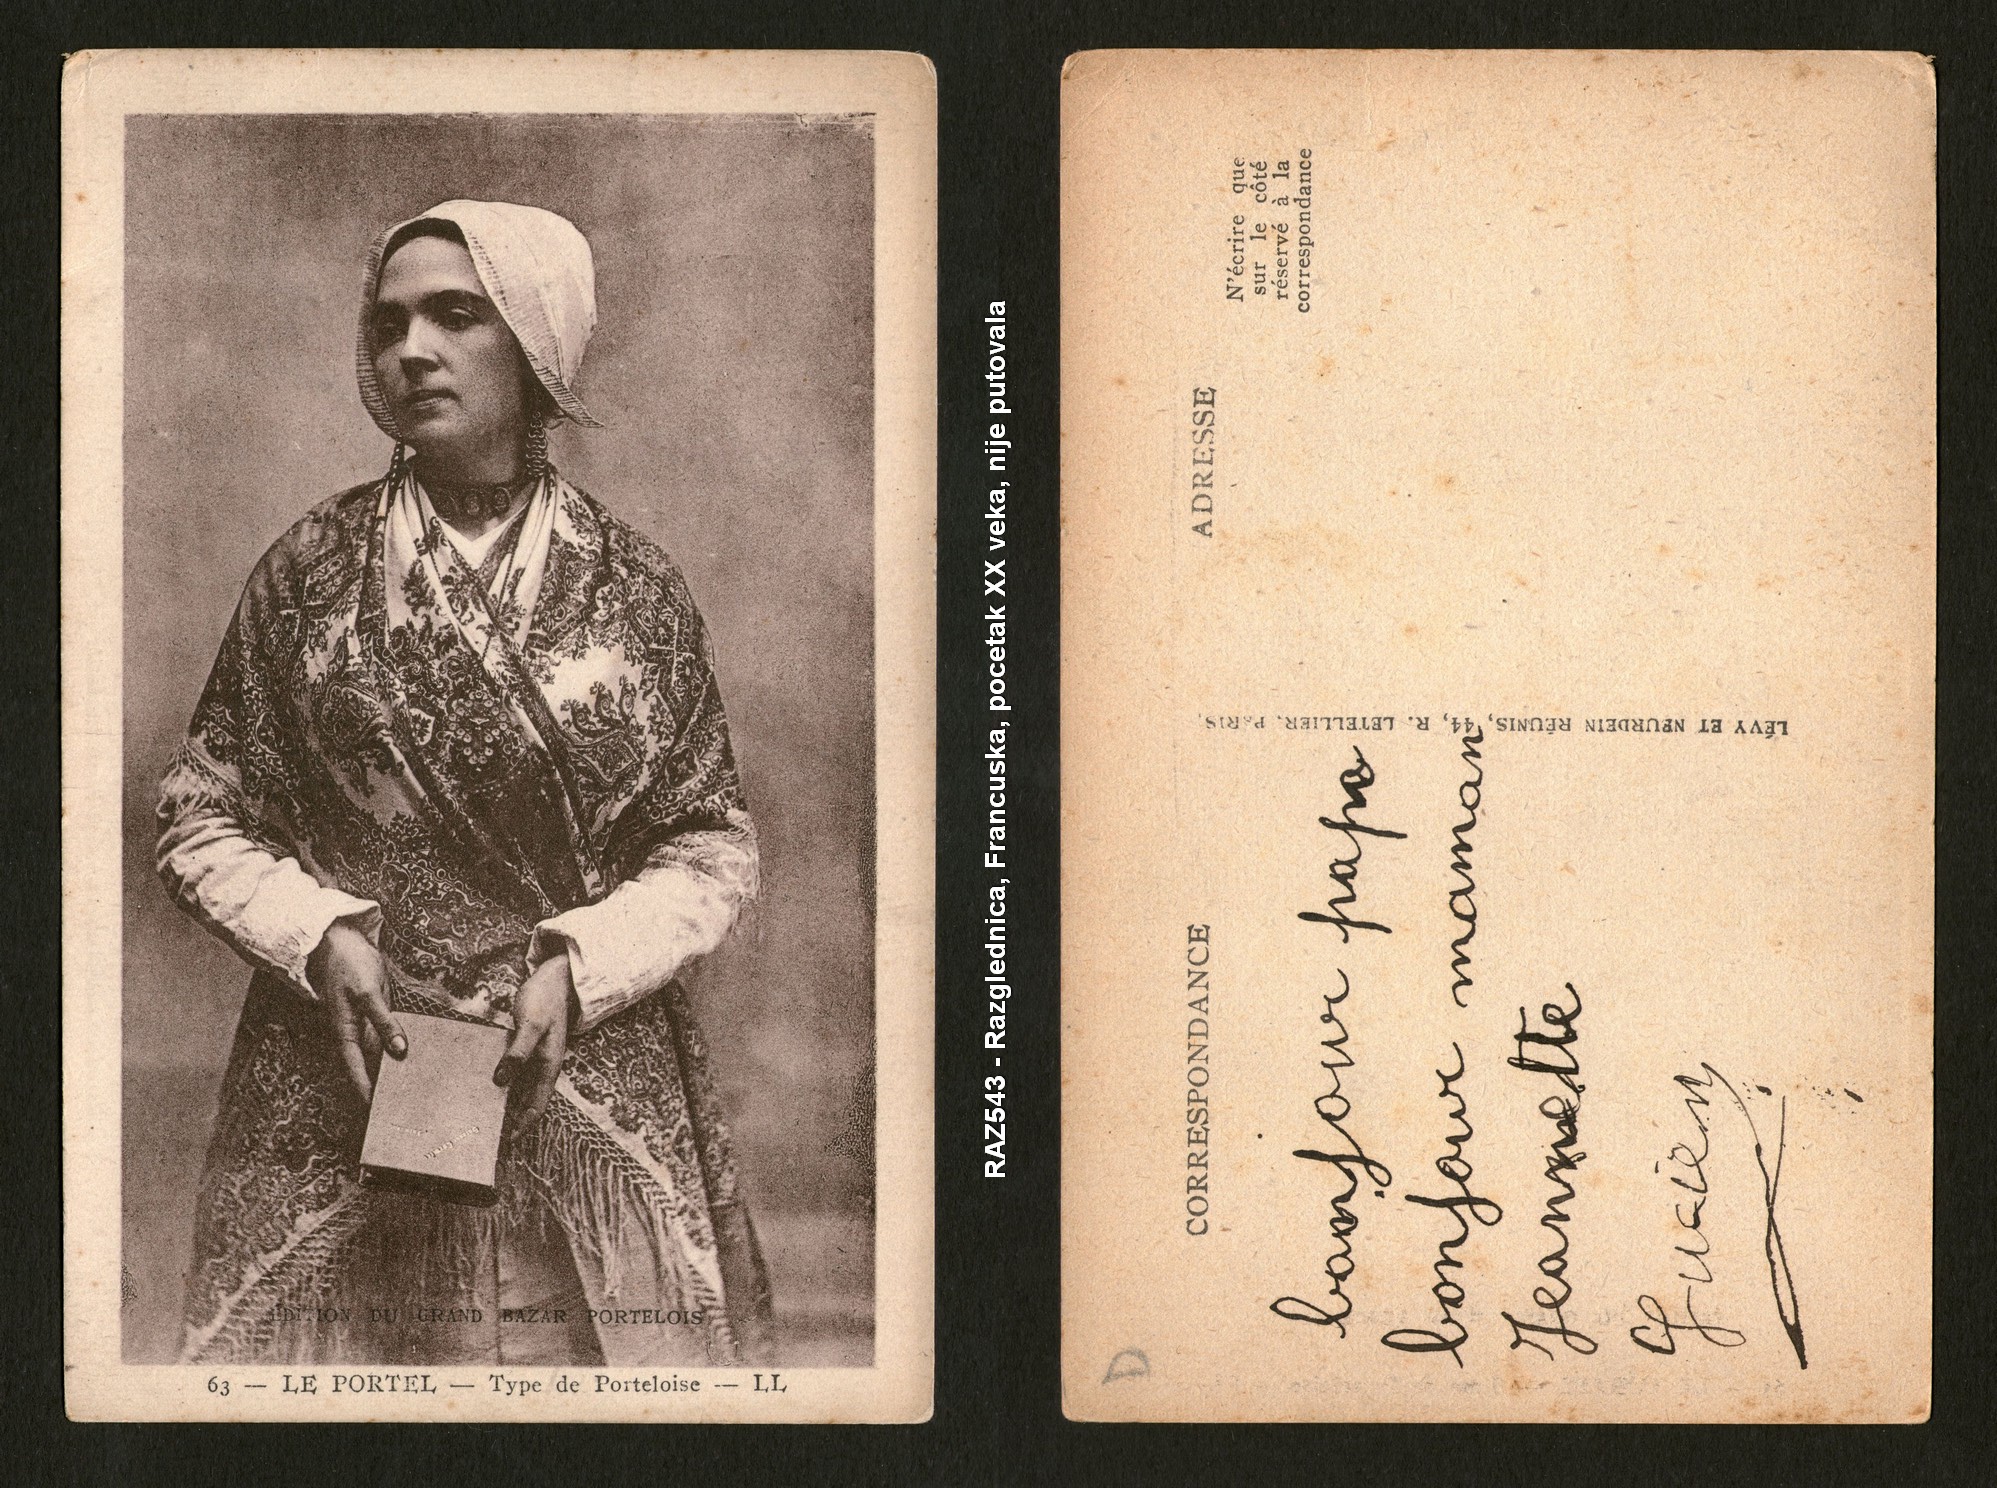 EDITION DU GRAND BAZAR PORTELOIS
63 — LE PORTEL — Type de Porteloise — LL
RAZ543 - Razglednica, Francuska, pocetak XX veka, nije putovala
CORRESPONDANCE
ADRESSE
N'écrire que
sur le côté
réservé à la
correspondance
LÉVY ET NEURDEIN RÉUNIS, 44, R. LETELLIER, PARIS.
bonjour papa
bonjour maman
Jeannette
D